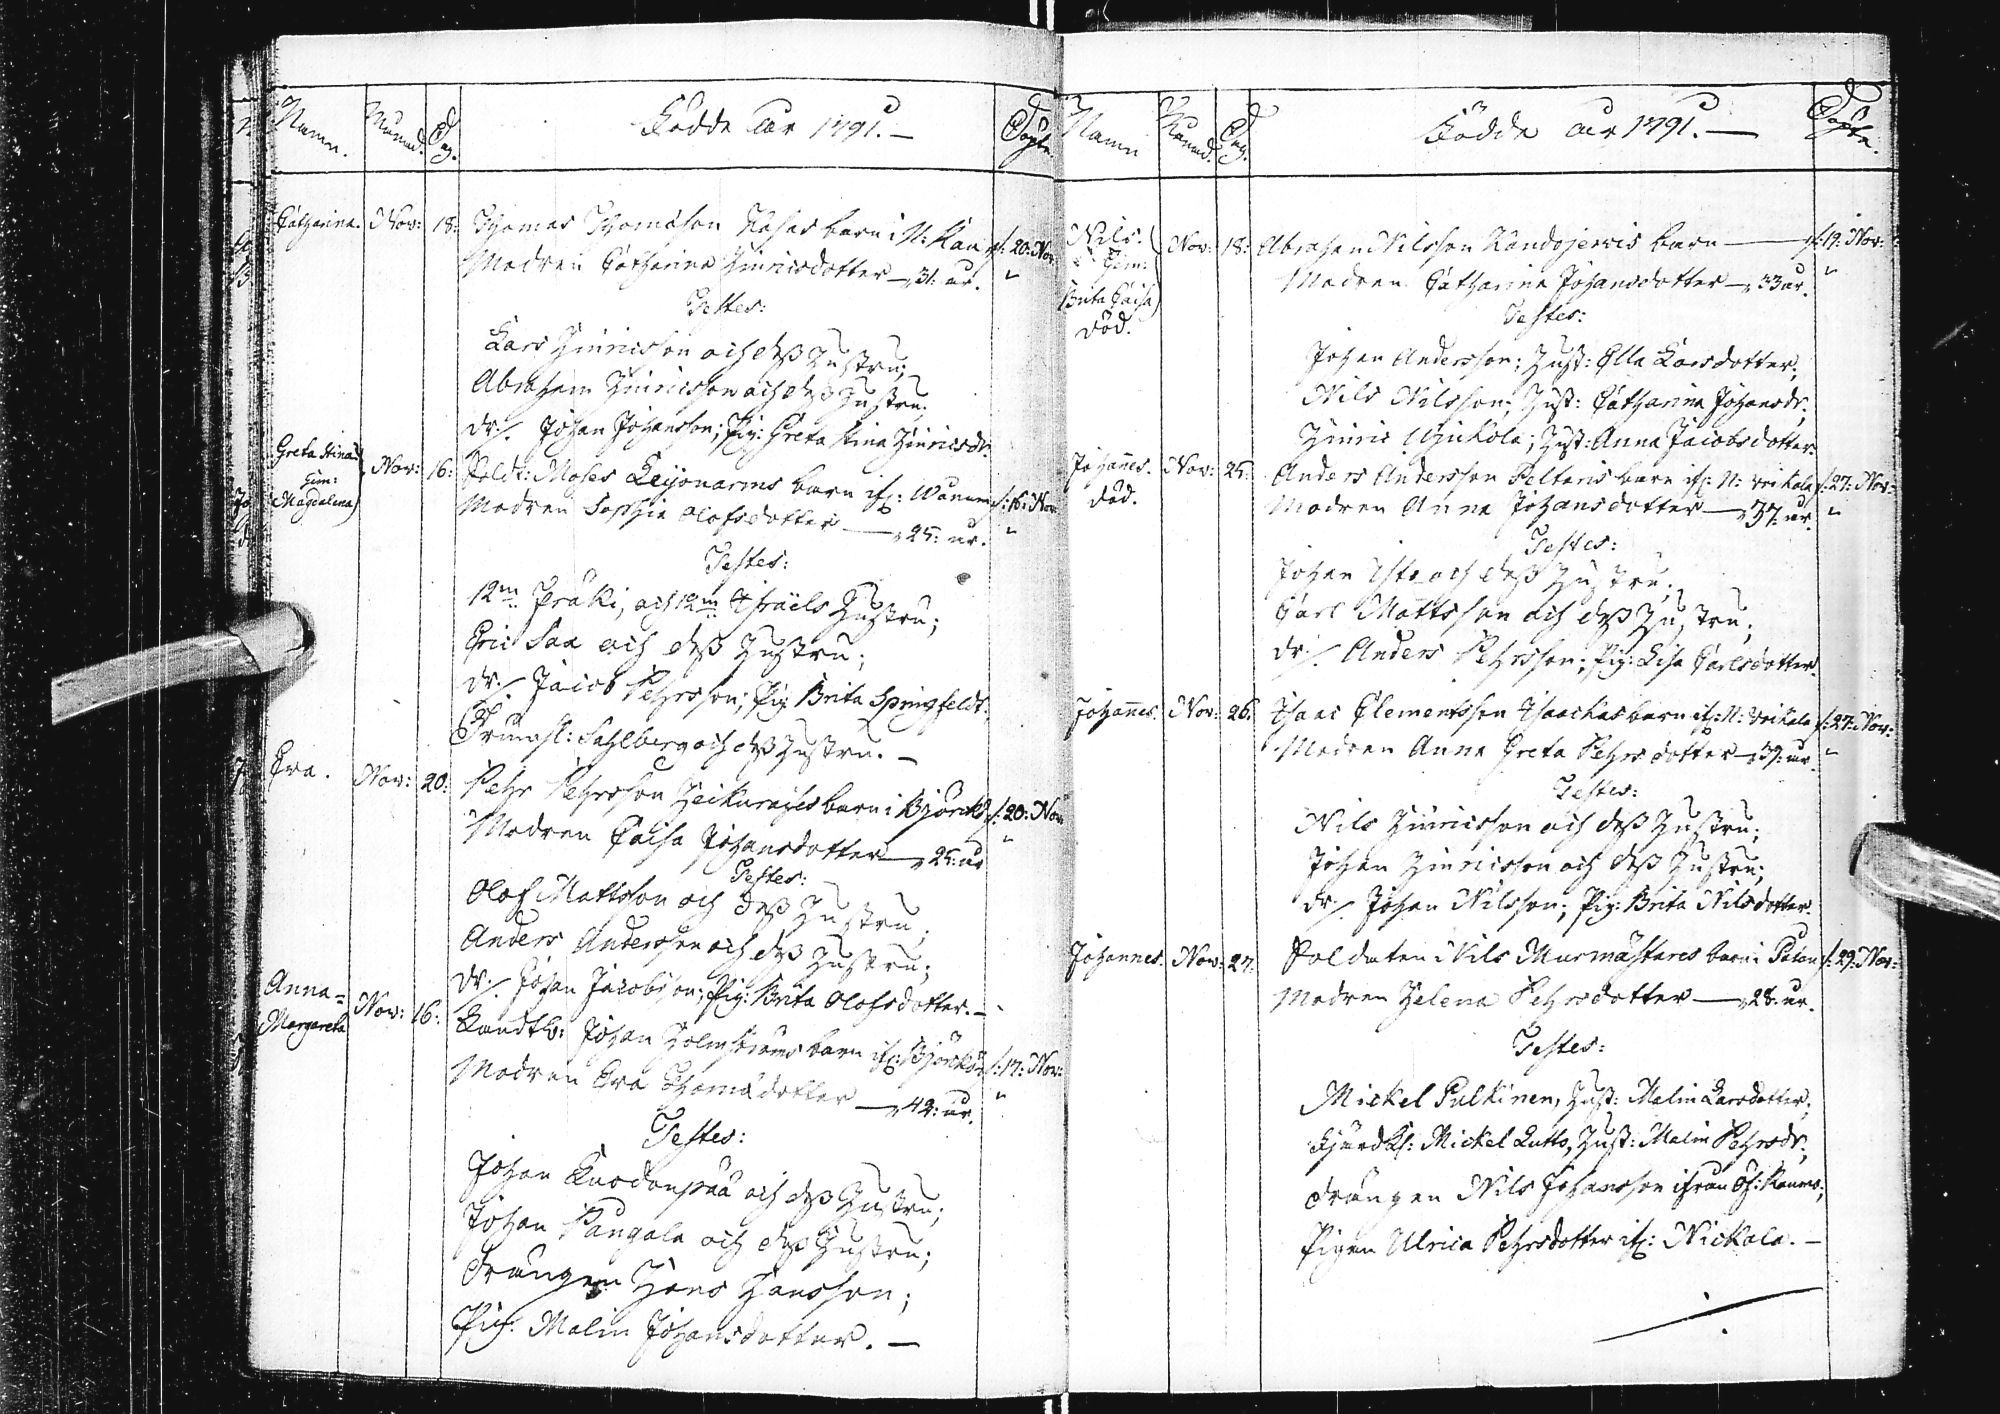 Namn. Månad. Dag. Födde åår 1791. — Döpte.
Catharina. Nov: 18: Thomas Thomasson barn i N: d: 20: Nov:
Modren Catharina Hinricsdotter — 31: år. "
Testes:
Lars Hinricsson och dess Hustru;
Abraham Hinricsson och dess Hustru.
dr:/. Johan Johansson; Pig: Greta Stina Hinricsdr.
Greta Stina Nov: 16: Soldt: Moses Leijonarms barn ifr: d: 16: Nov:
Gem:
Magdalena)
Modren Sophia Olofsdotter — 25: år. "
Testes:
12m: Präki, och 12m Israels Hustru;
Eric Sax och dess Hustru;
dr:/. Jacob Pehrsson; Pig: Brita Springfeldt.
Trumsl: Sahlberg och dess Hustru. —
Eva. Nov: 20: Pehr Pehrsson barn i Björck: d: 20: Nov:
Modren Caisa Johansdotter — 25: år "
Testes:
Olof Mattsson och dess Hustru;
Anders Andersson och dess Hustru;
dr:/. Johan Jacobsson; Pig: Brita Olofsdotter. —
Anna=
Margareta Nov: 16: Johan Holmströms barn ifr: Björckö: d: 17: Nov:
Modren Eva Thomasdotter — 42: år. "
Testes:
Johan och dess Hustru;
Johan Pangala och dess Hustru;
Drängen Hans Hansson;
Pig: Malin Johansdotter. —
Namn Månad. Dag. Födde åår 1791. — Döpte.
Nils. Nov: 18: Abraham Nilsson Kandojervis barn — d: 19: Nov:
Gem:
Brita Caisa)
död.
Modren Catharina Johansdotter — 33 år. "
Testes:
Johan Andersson; Hust: Ella Larsdotter;
Nils Nilsson; Hust: Catharina Johansdr;
Hinric; Hust: Anna Jacobsdotter.
Johannes. Nov: 25: Anders Andersson Peltaris barn ifr: N: Veikala d: 27: Nov:
död.
Modren Anna Johansdotter — 37: år. "
Testes:
Johan och dess Hustru;
Carl Mattsson och dess Hustru;
dr:/. Anders Pehrsson; Pig: Lisa Carlsdotter.
Johannes. Nov: 26: Isaac Clementsson Isaackas barn ifr: N: Veikala d: 27: Nov:
Modren Anna Greta Pehrsdotter — 39: år. "
Testes:
Nils Hinricsson och dess Hustru;
Johan Hinricsson och dess Hustru;
dr:/. Johan Nilsson; Pig: Brita Nilsdotter.
Johannes. Nov: 27: Soldaten Nils Murmästares barn i d: 29: Nov:
Modren Helena Pehrsdotter — 28: år.
Testes:
Mickel Pulkinen, Hust: Malin Larsdotter;
Fjärdks: Mickel Lutto, Hust: Malin Pehrsdr;
Drängen Nils Johansson ifrån
Pigan Ulrica Pehrsdotter ifr: Nickala. —